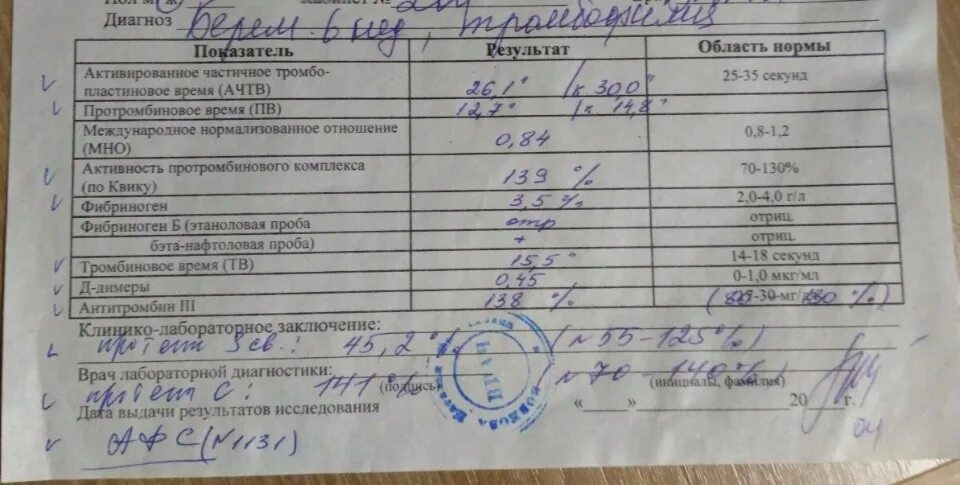 Диагноз Берем. 6 нед, тромбофилия
Показатель Результат Область нормы
Активированное частичное тромбо-
пластиновое время (АЧТВ) 26,1" /к 30,0" 25-35 секунд
Протромбиновое время (ПВ) 12,7" /к 14,8"
Международное нормализованное отношение
(МНО) 0,84 0,8-1,2
Активность протромбинового комплекса
(по Квику) 139 % 70-130%
Фибриноген 3,5 % 2,0-4,0 г/л
Фибриноген Б (этаноловая проба отр отриц.
бэта-нафтоловая проба) + отриц.
Тромбиновое время (ТВ) 15,5" 14-18 секунд
Д-димеры 0,45 0-1,0 мкг/мл
Антитромбин III 138 %
Клинико-лабораторное заключение:
протеин S св.: 45,2 % (N 55-125%)
Врач лабораторной диагностики:
(подпись) (инициалы, фамилия)
протеин С: 141 % (N 70-140%)
Дата выдачи результатов исследования «___» 20 г.
АФС (N1131)